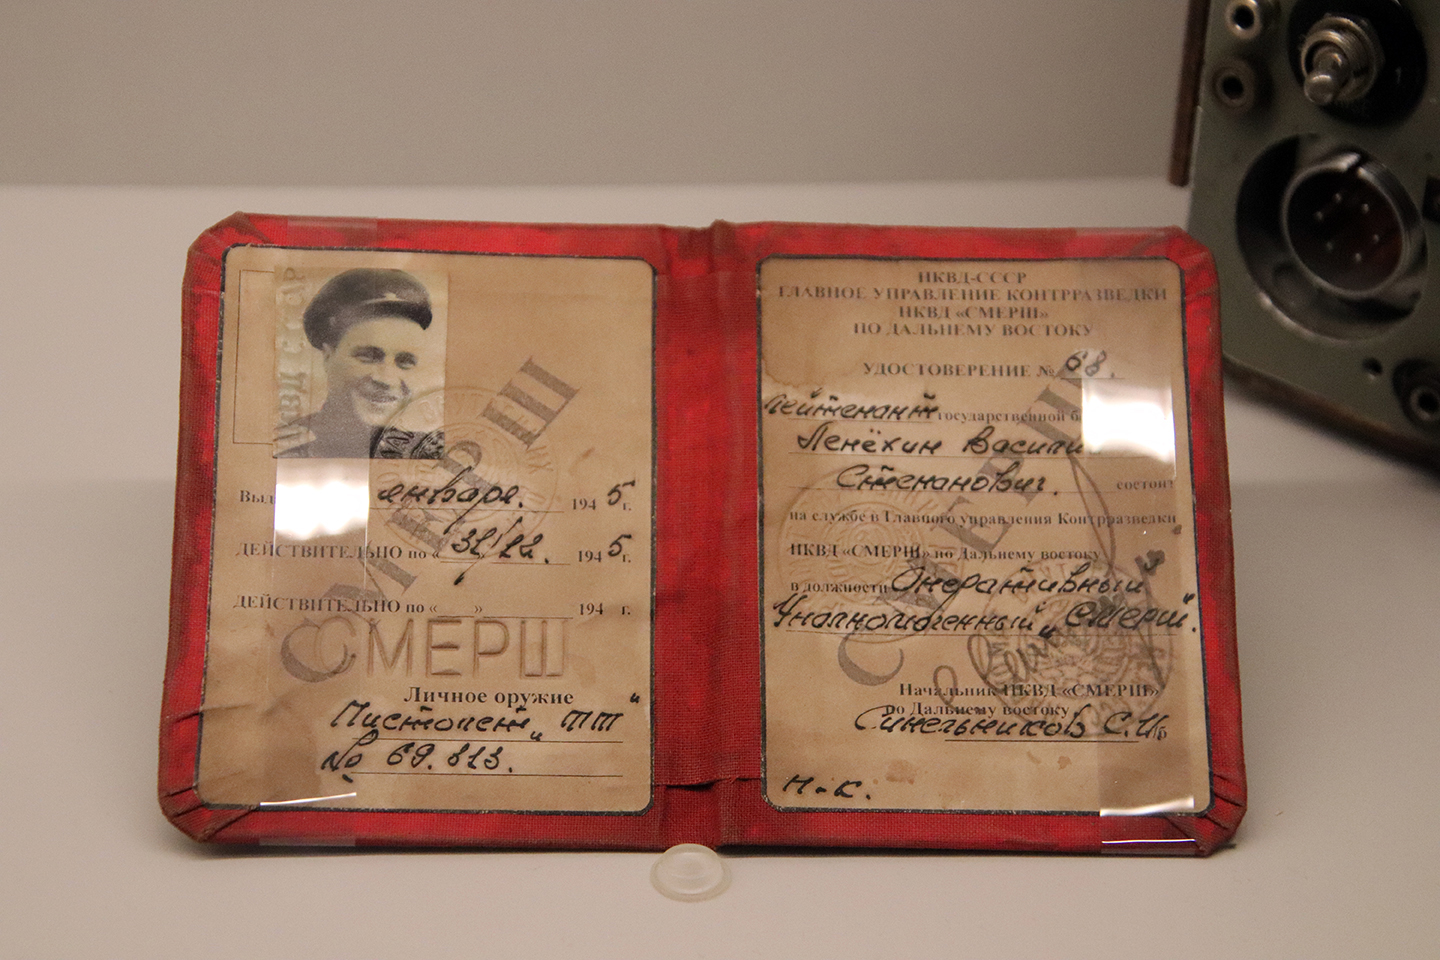 НКВД СССР
СМЕРШ
января. 194 5 г.
ДЕЙСТВИТЕЛЬНО по « 31/12. 194 5 г.
ДЕЙСТВИТЕЛЬНО по « » 194 г.
СМЕРШ
Личное оружие
Пистолет „ТТ“
№ 69.813.
НКВД-СССР
ГЛАВНОЕ УПРАВЛЕНИЕ КОНТРРАЗВЕДКИ
НКВД «СМЕРШ»
ПО ДАЛЬНЕМУ ВОСТОКУ
УДОСТОВЕРЕНИЕ № 68.
лейтенант государственной
Василий
Степанович. состоит
на службе в Главного управления Контрразведки
НКВД «СМЕРШ» по Дальнему востоку
в должности Оперативный
Уполномоченный „Смерш“.
Начальник НКВД «СМЕРШ»
по Дальнему востоку
Синельников С.И.
н-к.